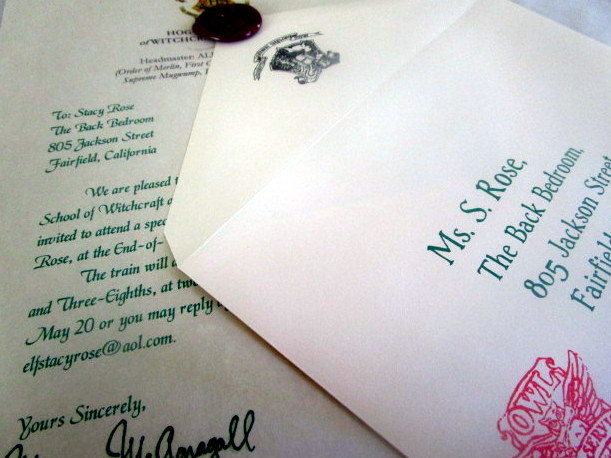 HOG
of WITCHCR
Headmaster: AL
(Order of Merlin, First C
Supreme Mugwump, I
To: Stacy Rose
The Back Bedroom
805 Jackson Street
Fairfield, California
We are pleased t
School of Witchcraft a
invited to attend a spec
Rose, at the End-of-
The train will
and Three-Eighths, at tw
May 20 or you may reply b
elfstacyrose@aol.com.
Yours Sincerely,
McGonagall
Ms. S. Rose,
The Back Bedroom,
805 Jackson Street
Fairfield
OWL
SERV